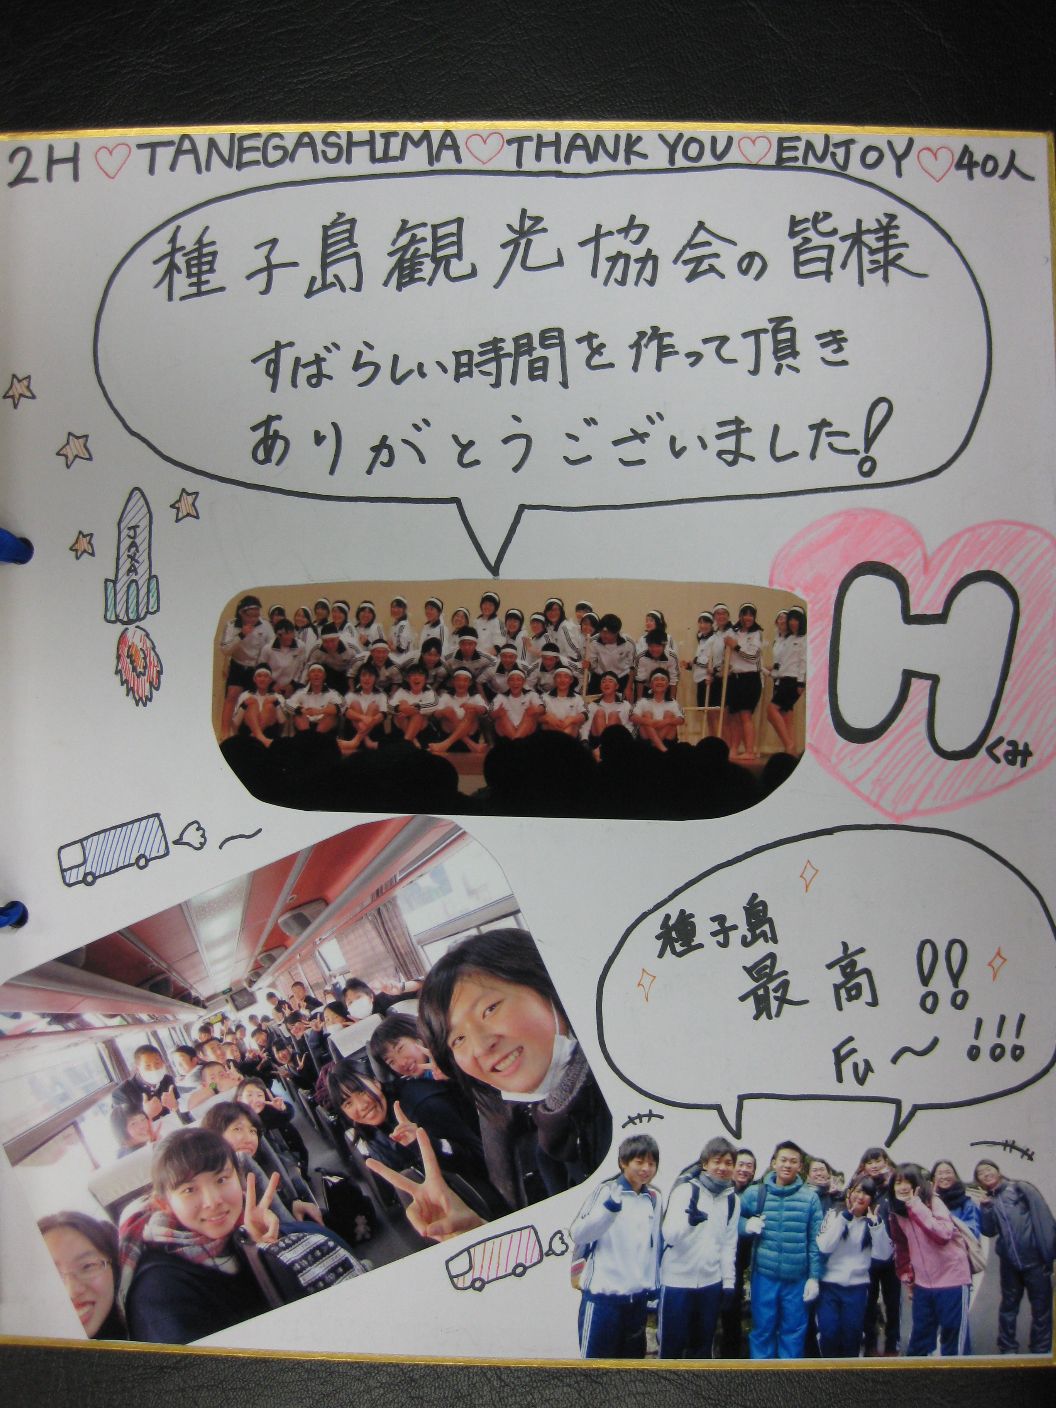 2H♡TANEGASHIMA♡THANK YOU♡ENJOY♡40人
種子島観光協会の皆様
すばらしい時間を作って頂き
ありがとうございました!
JAXA
H
くみ
種子島
最高!!
Fu〜!!!